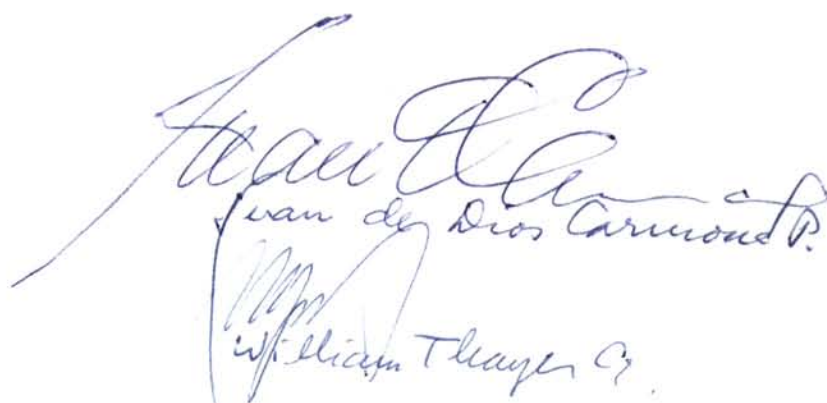 Juan de Dios Carmona P.
William Thayer A.